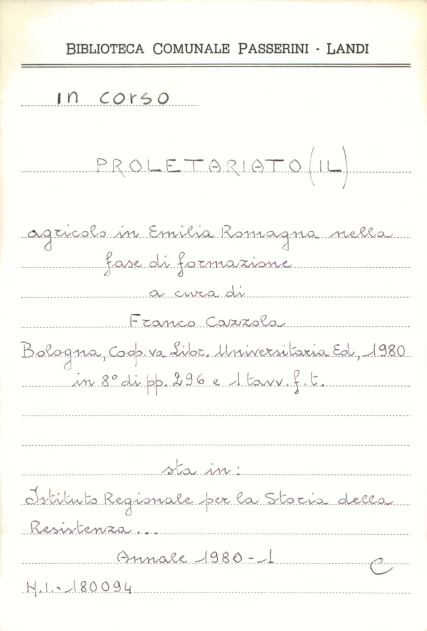 BIBLIOTECA COMUNALE PASSERINI - LANDI
in corso
PROLETARIATO (IL)
agricolo in Emilia Romagna nella
fase di formazione
a cura di
Franco Cazzola
Bologna, Coop.va Libr. Universitaria Ed., 1980
in 8° di pp. 296 e 1 tavv. f. t.
sta in:
Istituto Regionale per la Storia della
Resistenza...
Annale 1980-1
C
N.I.-180094